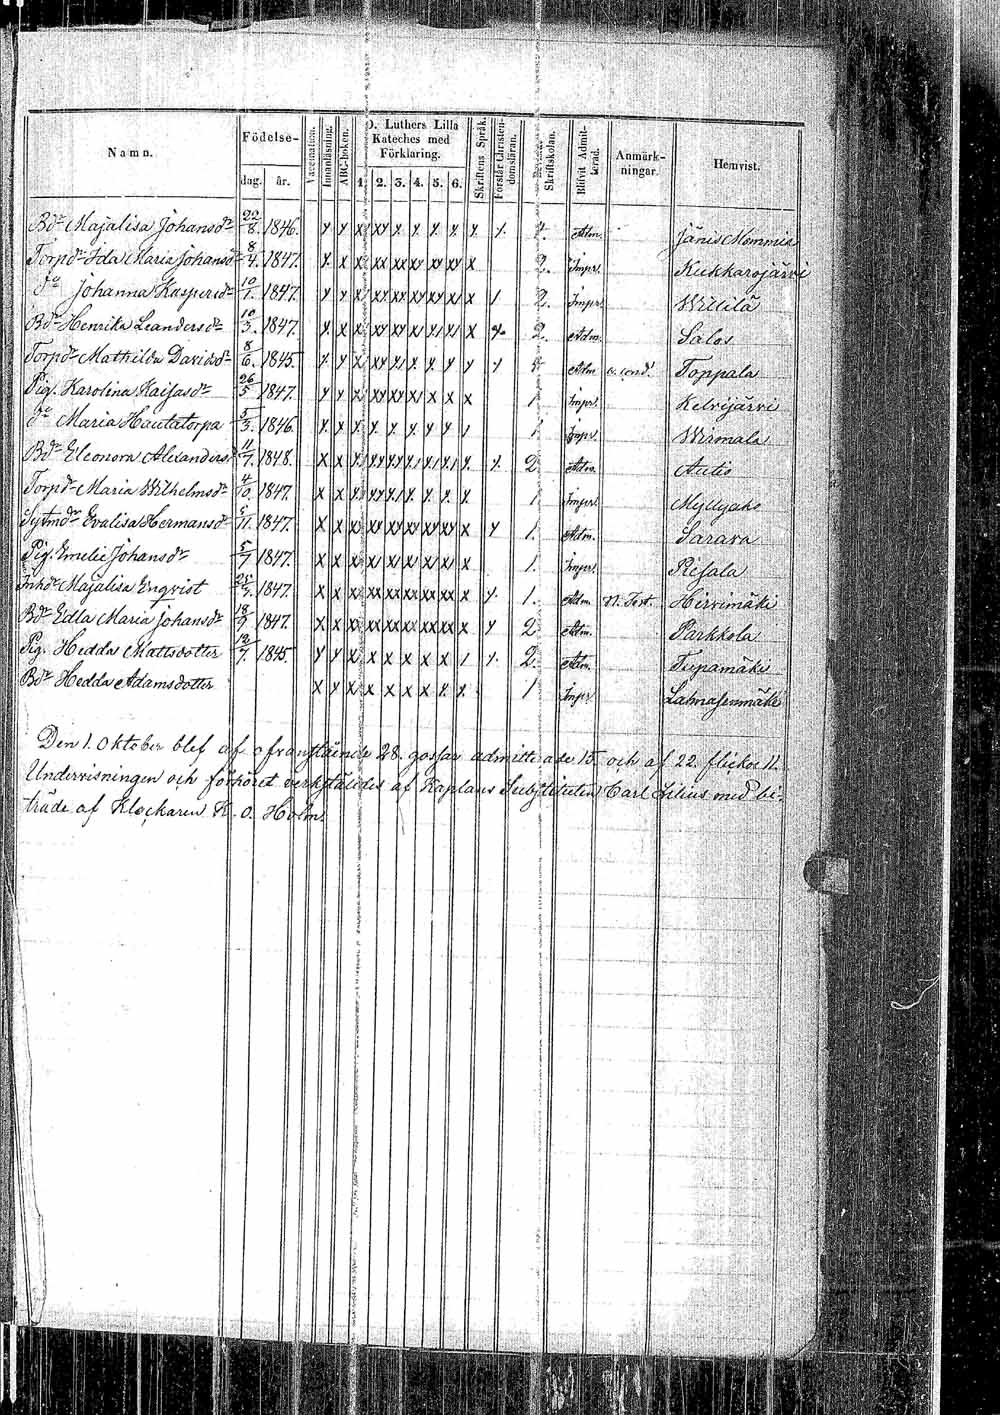 Namn. Födelse- Vaccination. Innanläsning. ABC-boken. D. Luthers Lilla Kateches med Förklaring. Skriftens Språk. Förstår Christendomsläran. Skriftskolan. Blifvit Admitterad. Anmärkningar. Hemvist.
dag. år. 1. 2. 3. 4. 5. 6.
Bdr Majalisa Johansdr 22/8. 1846. Adm. Jänis Mommia
Torpdr Ida Maria Johansdr 8/4. 1847. 2. Impr. Kukkarojärvi
do Johanna Kaspersdr 10/7. 1847. 2. Impr. Willilä
Bdr Henrika Leandersdr 10/3. 1847. 2. Adm. Salos
Torpdr Mathilda Davidsdr 8/6. 1845. Adm. Toppala
Pig. Karolina Kaisasdr 26/5 1847. 1 Impr. Kelvijärvi
do Maria Hautatorpa 5/3. 1846. 1 Impr. Wirmala
Bdr Eleonora Alexandersdr 11/7. 1848. 2 Adm. Autio
Torpdr Maria Wilhelmsdr 4/10. 1847. 1 Impr. Myllyaho
Sytmdr Evalisa Hermansdr 5/11. 1847. 1. Adm. Sarava
Pig. Emelie Johansdr 5/7 1847. 1. Impr. Piesala
Inhdr Majalisa Enqvist 25/3. 1847. 1. Adm. N. Test. Hirvimäki
Bdr Edla Maria Johansdr 18/9 1847. 2 Adm. Parkkola
Pig. Hedda Mattsdotter 12/7. 1845. 2. Adm. Tupamäki
Bdr Hedda Adamsdotter 1 Impr Lahnasenmäki
Den 1. Oktober blef af ofvanstående 28. gossar admitterade 15. och af 22. flickor 11.
Undervisningen och förhöret verkställdes af Kaplans Substituten Carl Lilius med bi-
träde af Klockaren K. O. Holm.